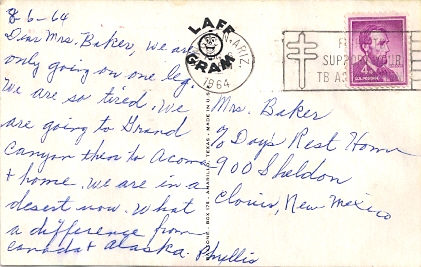 8-6-64
Dear Mrs. Baker, we are
only going on one leg.
We are so tired. We
are going to Grand
Canyon then to Acoma
& home. We are in a
desert now. What
a difference from
Canada & Alaska. Phyllis
LAFF
GRAM
ARIZ.
1964
SUPPORT YOUR
TB
4¢
U.S. POSTAGE
BOX 179 - AMARILLO, TEXAS - MADE IN U.S.
Mrs. Baker
% Days Rest Home
900 Sheldon
Clovis, New Mexico